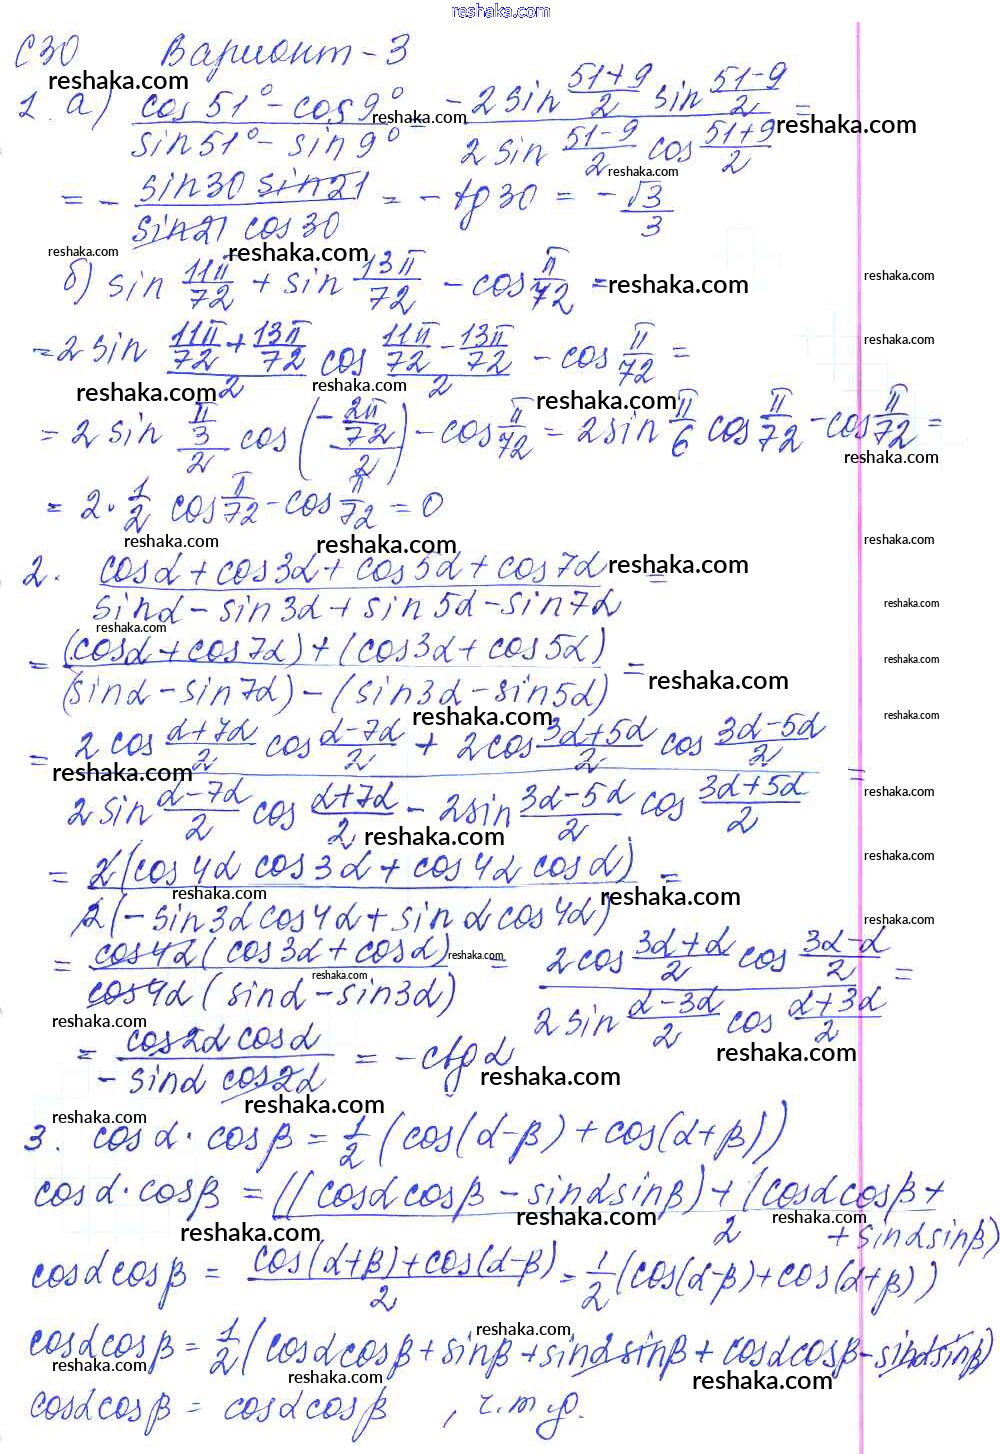 reshaka.com
С30 Вариант-3
1. а) (cos 51° - cos 9°)/(sin 51° - sin 9°) = (-2 sin (51+9)/2 sin (51-9)/2)/(2 sin (51-9)/2 cos (51+9)/2) =
= - (sin 30 sin 21)/(sin 21 cos 30) = - tg 30 = - √3/3
б) sin 11π/72 + sin 13π/72 - cos π/72 =
= 2 sin (11π/72 + 13π/72)/2 cos (11π/72 - 13π/72)/2 - cos π/72 =
= 2 sin (π/3)/2 cos ((-2π/72)/2) - cos π/72 = 2 sin π/6 cos π/72 - cos π/72 =
= 2 · 1/2 cos π/72 - cos π/72 = 0
2. (cos α + cos 3α + cos 5α + cos 7α)/(sin α - sin 3α + sin 5α - sin 7α) =
= ((cos α + cos 7α) + (cos 3α + cos 5α))/((sin α - sin 7α) - (sin 3α - sin 5α)) =
= (2 cos (α+7α)/2 cos (α-7α)/2 + 2 cos (3α+5α)/2 cos (3α-5α)/2)/(2 sin (α-7α)/2 cos (α+7α)/2 - 2 sin (3α-5α)/2 cos (3α+5α)/2) =
= 2(cos 4α cos 3α + cos 4α cos α)/2(-sin 3α cos 4α + sin α cos 4α) =
= cos 4α (cos 3α + cos α)/cos 4α (sin α - sin 3α) = (2 cos (3α+α)/2 cos (3α-α)/2)/(2 sin (α-3α)/2 cos (α+3α)/2) =
= (cos 2α cos α)/(- sin α cos 2α) = - ctg α
3. cos α · cos β = 1/2 (cos(α-β) + cos(α+β))
cos α · cos β = ((cos α cos β - sin α sin β) + (cos α cos β + sin α sin β)/2
cos α cos β = (cos(α+β) + cos(α-β))/2 = 1/2 (cos(α-β) + cos(α+β))
cos α cos β = 1/2 (cos α cos β + sin β + sin α sin β + cos α cos β - sin α sin β)
cos α cos β = cos α cos β , ч.т.д.